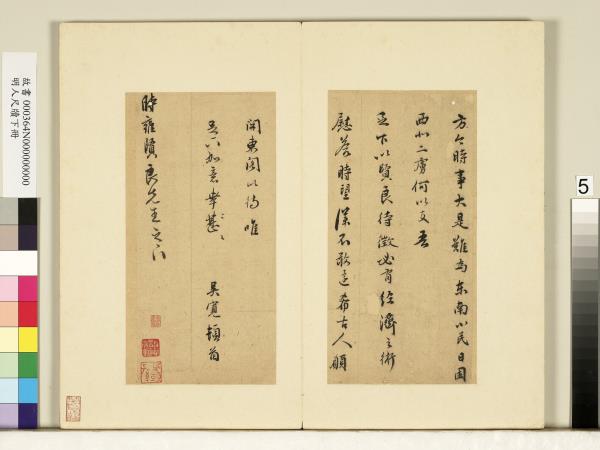 方今時事大是難為东南小民日困
西北二虜何以支吾
足下以賢良待徵必有經濟之術
慰答時望深不敢遠希古人願
開東閣以待唯
足下如意幸甚幸甚
吳寬頓首
時雍賢良先生之下
故書 000364N000000000
明人尺牘下冊
5